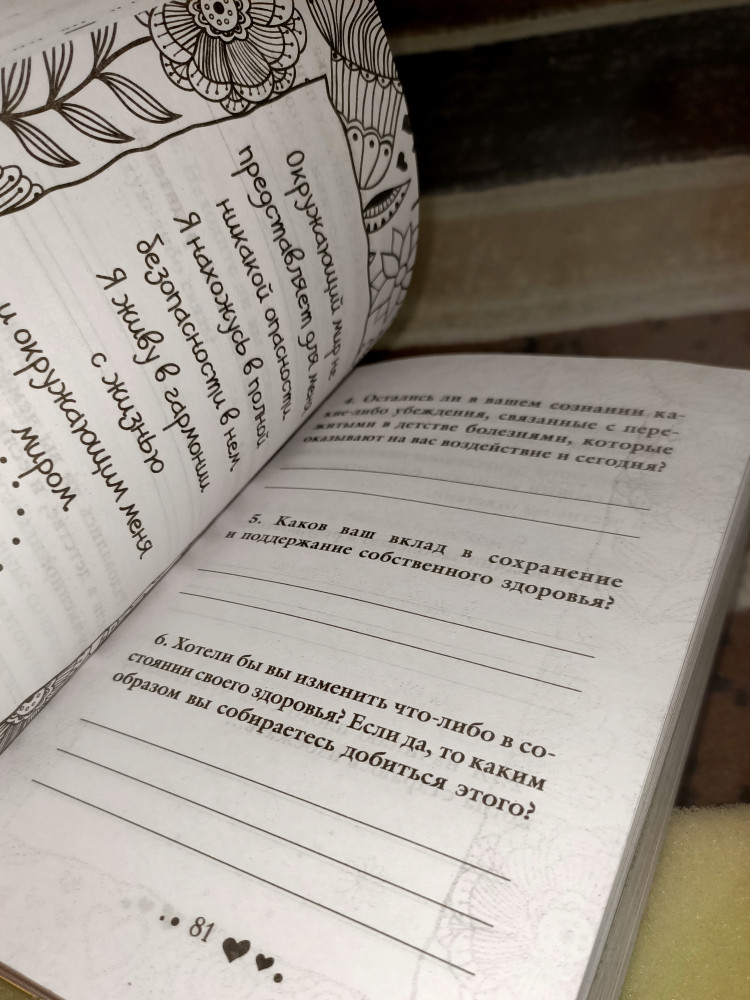 Окружающий мир не
представляет для меня
никакой опасности
Я нахожусь в полной
безопасности в нем
Я живу в гармонии
с жизнью
и окружающим меня
миром
4. Остались ли в вашем сознании ка-
кие-либо убеждения, связанные с пере-
житыми в детстве болезнями, которые
оказывают на вас воздействие и сегодня?
5. Каков ваш вклад в сохранение
и поддержание собственного здоровья?
6. Хотели бы вы изменить что-либо в со-
стоянии своего здоровья? Если да, то каким
образом вы собираетесь добиться этого?
81